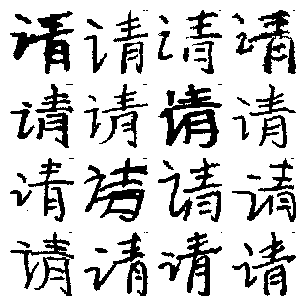 请请请请
请请请请
请请请请
请请请请